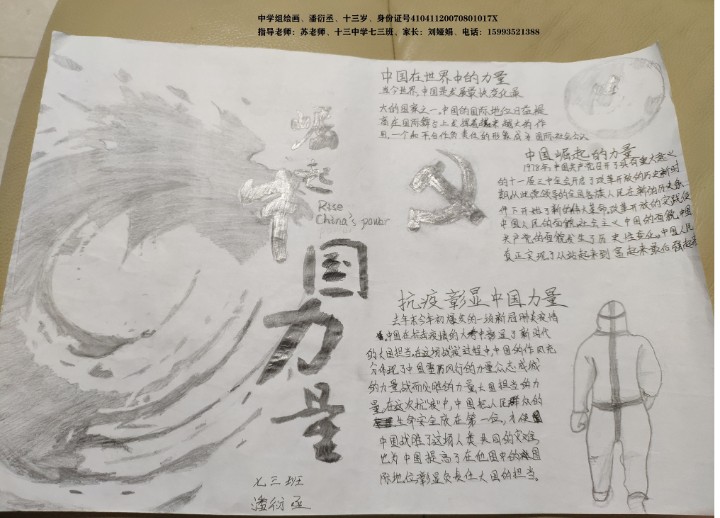 中学组绘画、潘衍丞、十三岁、身份证号41041120070801017X
指导老师：苏老师、十三中学七三班、家长：刘娅娟、电话：15993521388
崛起
中
国
力
量
Rise
China's power
七三班
潘衍丞
中国在世界中的力量
当今世界，中国是发展最快变化最
大的国家之一，中国的国际地位日益提
高在国际舞台上发挥着越来越大的作
用，一个和平合作负责任的形象成为国际社会公认
中国崛起的力量
1978年，中国共产党召开了具有重大意义
的十一届三中全会开启了改革开放的历史新时
期从此党领导的全国各族人民在新的历史条
件下开始了新的伟大革命，改革开放的实践使
中国人民的面貌社会主义中国的面貌，中国
共产党的面貌发生了历史性变化。中国人民
真正实现了从站起来到富起来最后强起来
抗疫彰显中国力量
去年末今年初爆发的一场新冠肺炎疫情
中国在抗击疫情的大考中彰显了新时代
的大国担当，在这场战"疫"过程中，中国的作风充
分体现了中国雷厉风行的力量众志成城
的力量，战而必胜的力量，大国担当的力
量，在这次抗"疫"中，中国把人民群众的
生命安全放在第一位，才使
中国战胜了这场人类共同的灾难，
也为中国提高了在他国中的国
际地位彰显负责任大国的担当。